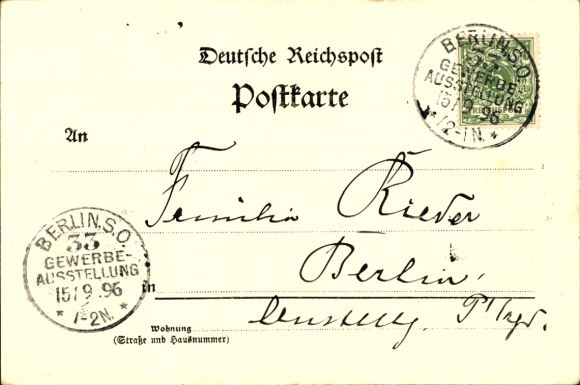 Deutsche Reichspost
Postkarte
BERLIN, S.O.
33
GEWERBE-
AUSSTELLUNG
15/9.96
*1/2-1N.*
An
Familie Rieder
Berlin,
in
BERLIN, S.O.
33
GEWERBE-
AUSSTELLUNG
15/9.96
*1-2N.*
Wohnung
(Straße und Hausnummer)